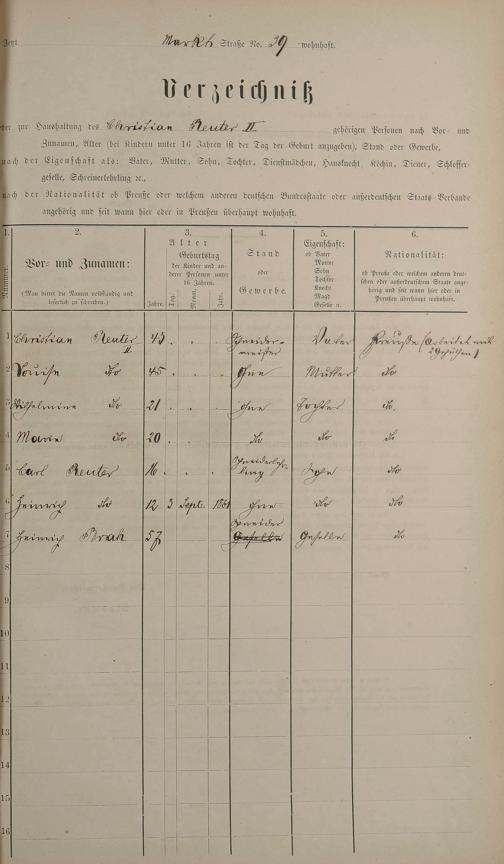 Jetzt Markt Straße No. 29 wohnhaft.
Verzeichniß
der zur Haushaltung des Christian Reuter II. gehörigen Personen nach Vor- und
Zunamen, Alter (bei Kindern unter 16 Jahren ist der Tag der Geburt anzugeben), Stand oder Gewerbe,
nach der Eigenschaft als: Vater, Mutter, Sohn, Tochter, Dienstmädchen, Hausknecht, Köchin, Diener, Schlosser-
geselle, Schreinerlehrling &c.,
nach der Nationalität ob Preuße oder welchem anderen deutschen Bundesstaate oder außerdeutschen Staats-Verbande
angehörig und seit wann hier oder in Preußen überhaupt wohnhaft.
1. 2. 3. 4. 5. 6.
Nummer.
Vor- und Zunamen:
(Man bittet die Namen vollständig und
leserlich zu schreiben.)
Alter
Geburtstag
der Kinder und an-
derer Personen unter
16 Jahren.
Jahre. Tag. Monat. Jahr.
Stand
oder
Gewerbe.
Eigenschaft:
ob Vater
Mutter
Sohn
Tochter
Knecht
Magd
Geselle u.
Nationalität:
ob Preuße oder welchem anderen deut-
schen oder außerdeutschen Staate ange-
hörig und seit wann hier oder in
Preußen überhaupt wohnhaft.
1 Christian Reuter II. 45 . . . Schneider-meister Vater Preuße (arbeitet mit 2 Gehülfen)
2 Louise do 45 . . . ohne Mutter do
3 Wilhelmine do 21 . . . ohne Tochter do.
4 Marie do 20 . . . do do do
5 Carl Reuter 16 . . . Schneiderlehr-ling Sohn do
6 Heinrich do 12 3 Septr. 1861 ohne do do
7 Heinrich 57 Schneider Geselle Geselle do
8
9
10
11
12
13
14
15
16